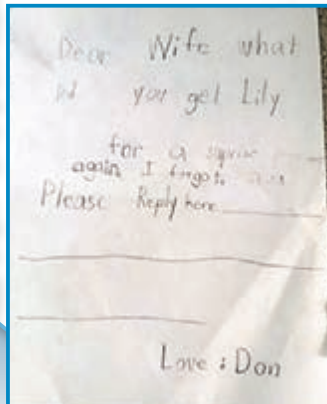 Dear Wife what
you get Lily
for a
again I forgot
Please Reply here
Love : Don